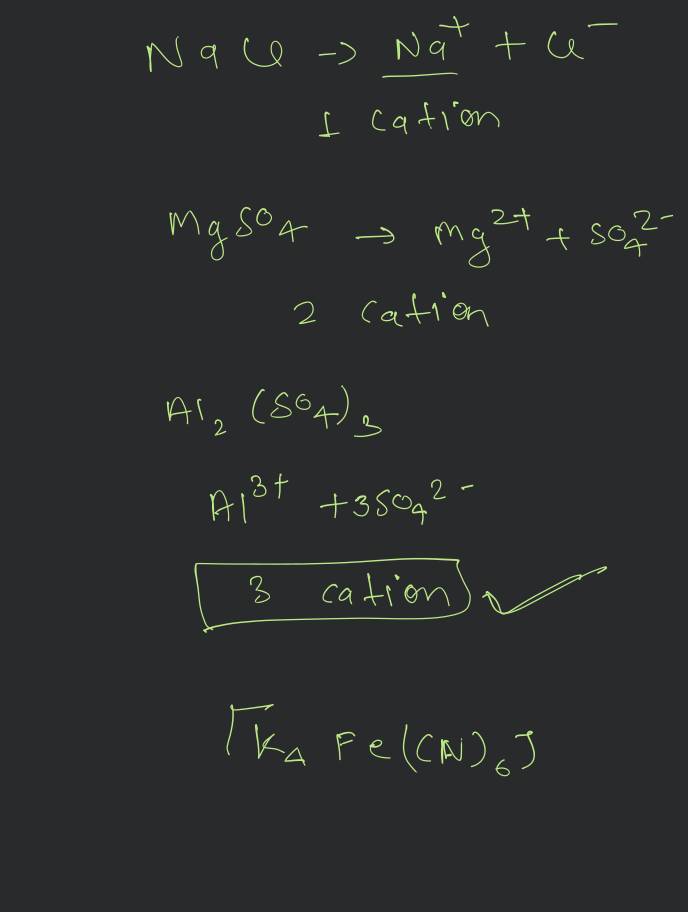 NaCl -> Na⁺ + Cl⁻
1 cation
MgSO₄ → Mg²⁺ + SO₄²⁻
2 cation
Al₂(SO₄)₃
Al³⁺ +3SO₄²⁻
3 cation
[K₄ Fe(CN)₆]